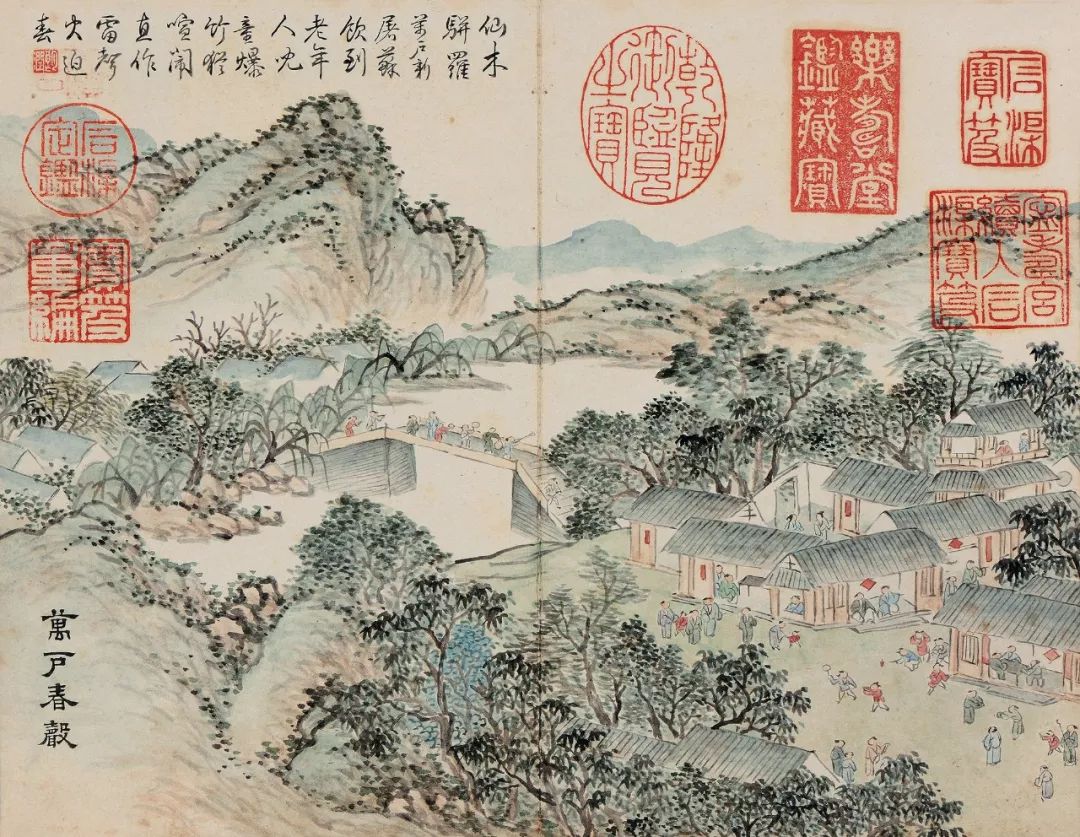 石渠
寶笈
寧壽宮
續入石
渠寶笈
樂壽堂
鑑藏寶
乾隆
御覽
之寶
仙木
駢羅
萬戶新
屠蘇
飲到
老年
人兒
童爆
竹猶
喧鬧
直作
雷聲
火迫
春
石渠
定鑑
寶笈
重編
萬戶春聲